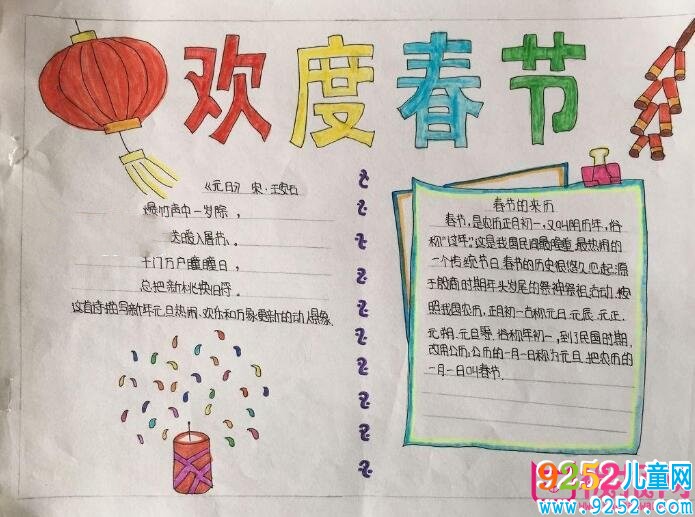 欢度春节
《元日》 宋·王安石
爆竹声中一岁除，
送暖入屠苏。
千门万户瞳瞳日，
总把新桃换旧符。
这首诗描写新年元旦热闹、欢乐和万象更新的动人景象。
春节的来历
春节，是农历正月初一，又叫阴历年，俗
称“过年”。这是我国民间最隆重、最热闹的
一个传统节日。春节的历史很悠久，它起源
于殷商时期年头岁尾的祭神祭祖活动。按
照我国农历，正月初一古称元日、元辰、元正、
元朔、元旦等，俗称年初一，到了民国时期，
改用公历，公历的一月一日称为元旦，把农历的
一月一日叫春节。
9252儿童网
www.9252.com